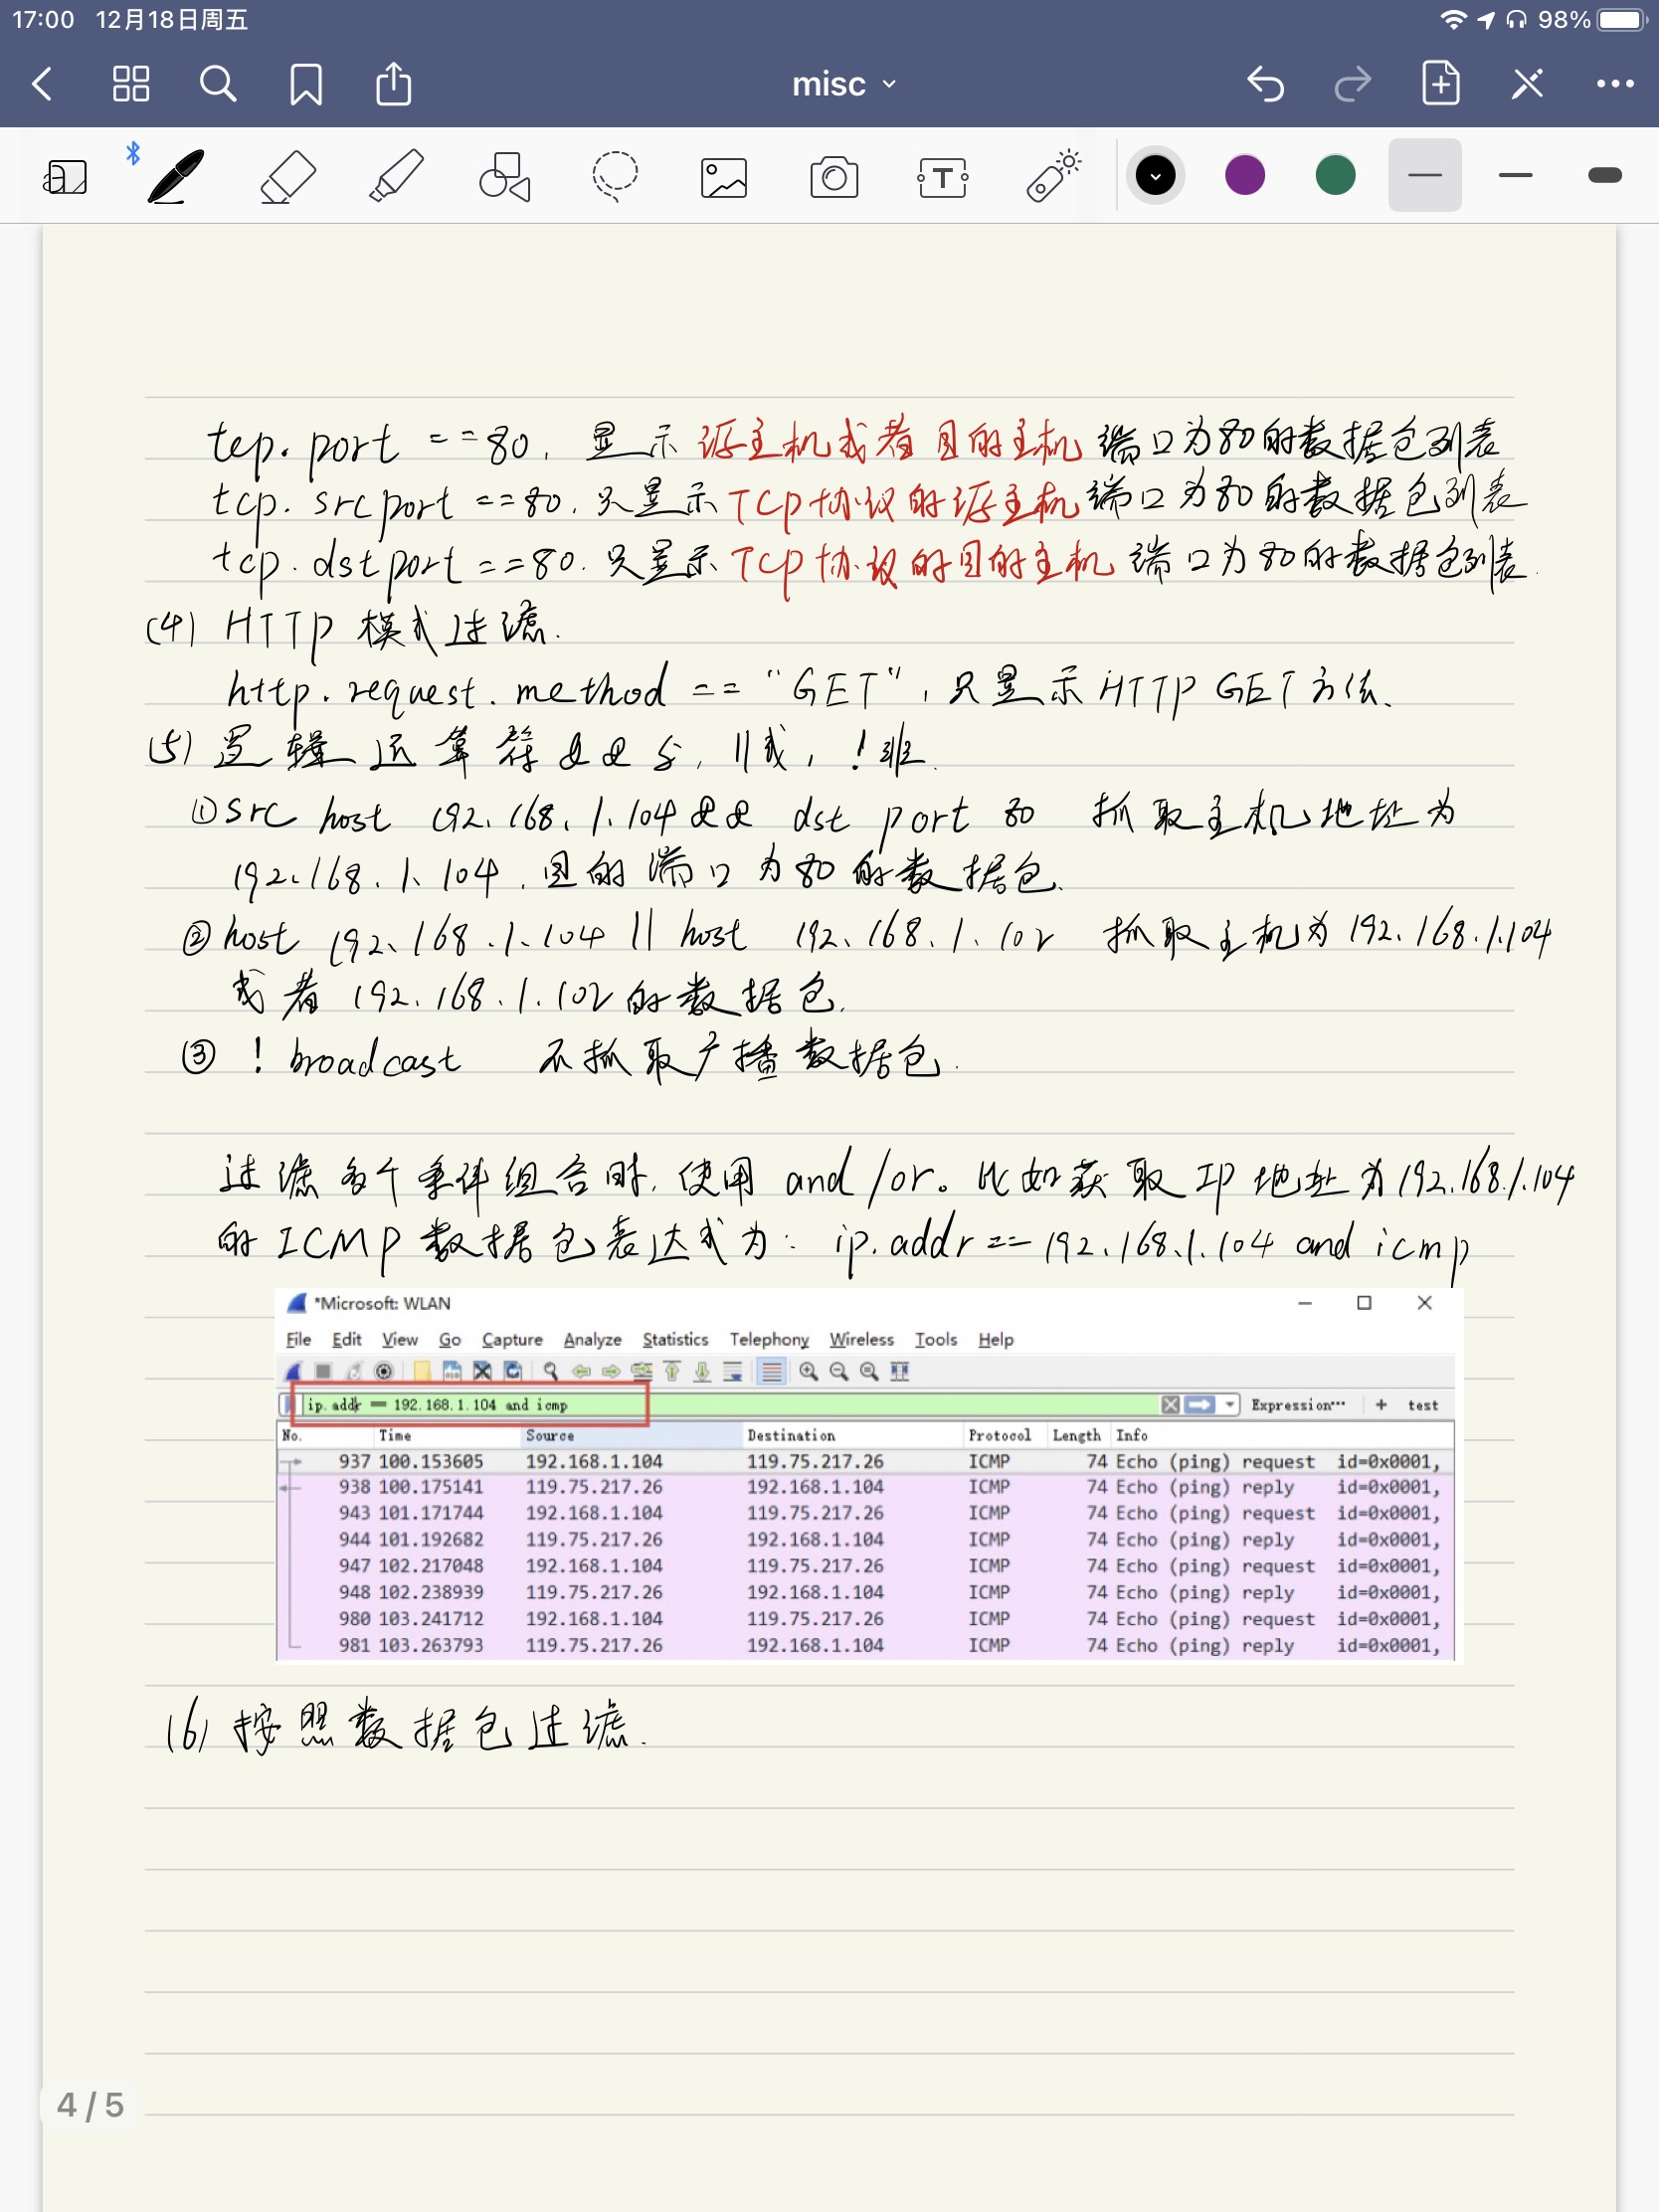 17:00 12月18日周五 98%
misc
tcp.port ==80, 显示源主机或者目的主机端口为80的数据包列表
tcp.srcport ==80.只显示TCP协议的源主机端口为80的数据包列表
tcp.dstport ==80.只显示TCP协议的目的主机端口为80的数据包列表.
(4) HTTP 模式过滤.
http.request.method == “GET”,只显示HTTP GET方法.
(5) 逻辑运算符&&与,||或,!非.
①src host 192.168.1.104 && dst port 80 抓取主机地址为
192.168.1.104,目的端口为80的数据包.
②host 192.168.1.104 || host 192.168.1.102 抓取主机为192.168.1.104
或者192.168.1.102的数据包.
③ ! broadcast 不抓取广播数据包.
过滤多个条件组合时,使用and/or。比如获取IP地址为192.168.1.104
的ICMP数据包表达式为: ip.addr == 192.168.1.104 and icmp
*Microsoft: WLAN
File Edit View Go Capture Analyze Statistics Telephony Wireless Tools Help
ip.addr == 192.168.1.104 and icmp Expression… + test
No. Time Source Destination Protocol Length Info
937 100.153605 192.168.1.104 119.75.217.26 ICMP 74 Echo (ping) request id=0x0001,
938 100.175141 119.75.217.26 192.168.1.104 ICMP 74 Echo (ping) reply id=0x0001,
943 101.171744 192.168.1.104 119.75.217.26 ICMP 74 Echo (ping) request id=0x0001,
944 101.192682 119.75.217.26 192.168.1.104 ICMP 74 Echo (ping) reply id=0x0001,
947 102.217048 192.168.1.104 119.75.217.26 ICMP 74 Echo (ping) request id=0x0001,
948 102.238939 119.75.217.26 192.168.1.104 ICMP 74 Echo (ping) reply id=0x0001,
980 103.241712 192.168.1.104 119.75.217.26 ICMP 74 Echo (ping) request id=0x0001,
981 103.263793 119.75.217.26 192.168.1.104 ICMP 74 Echo (ping) reply id=0x0001,
(6) 按照数据包过滤.
4 / 5